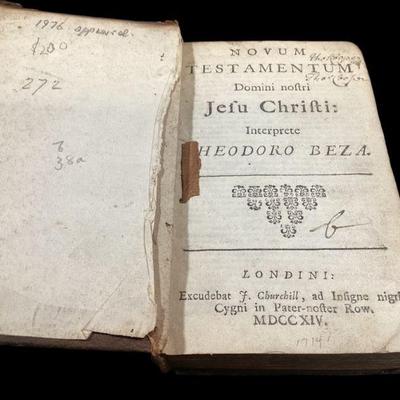 1976 appraised
$200
272
38a
NOVUM
TESTAMENTUM
Domini nostri
Jeſu Chriſti:
Interprete
HEODORO BEZA.
b
LONDINI:
Excudebat J. Churchill, ad Inſigne nigri
Cygni in Pater-noſter Row.
MDCCXIV.
1714